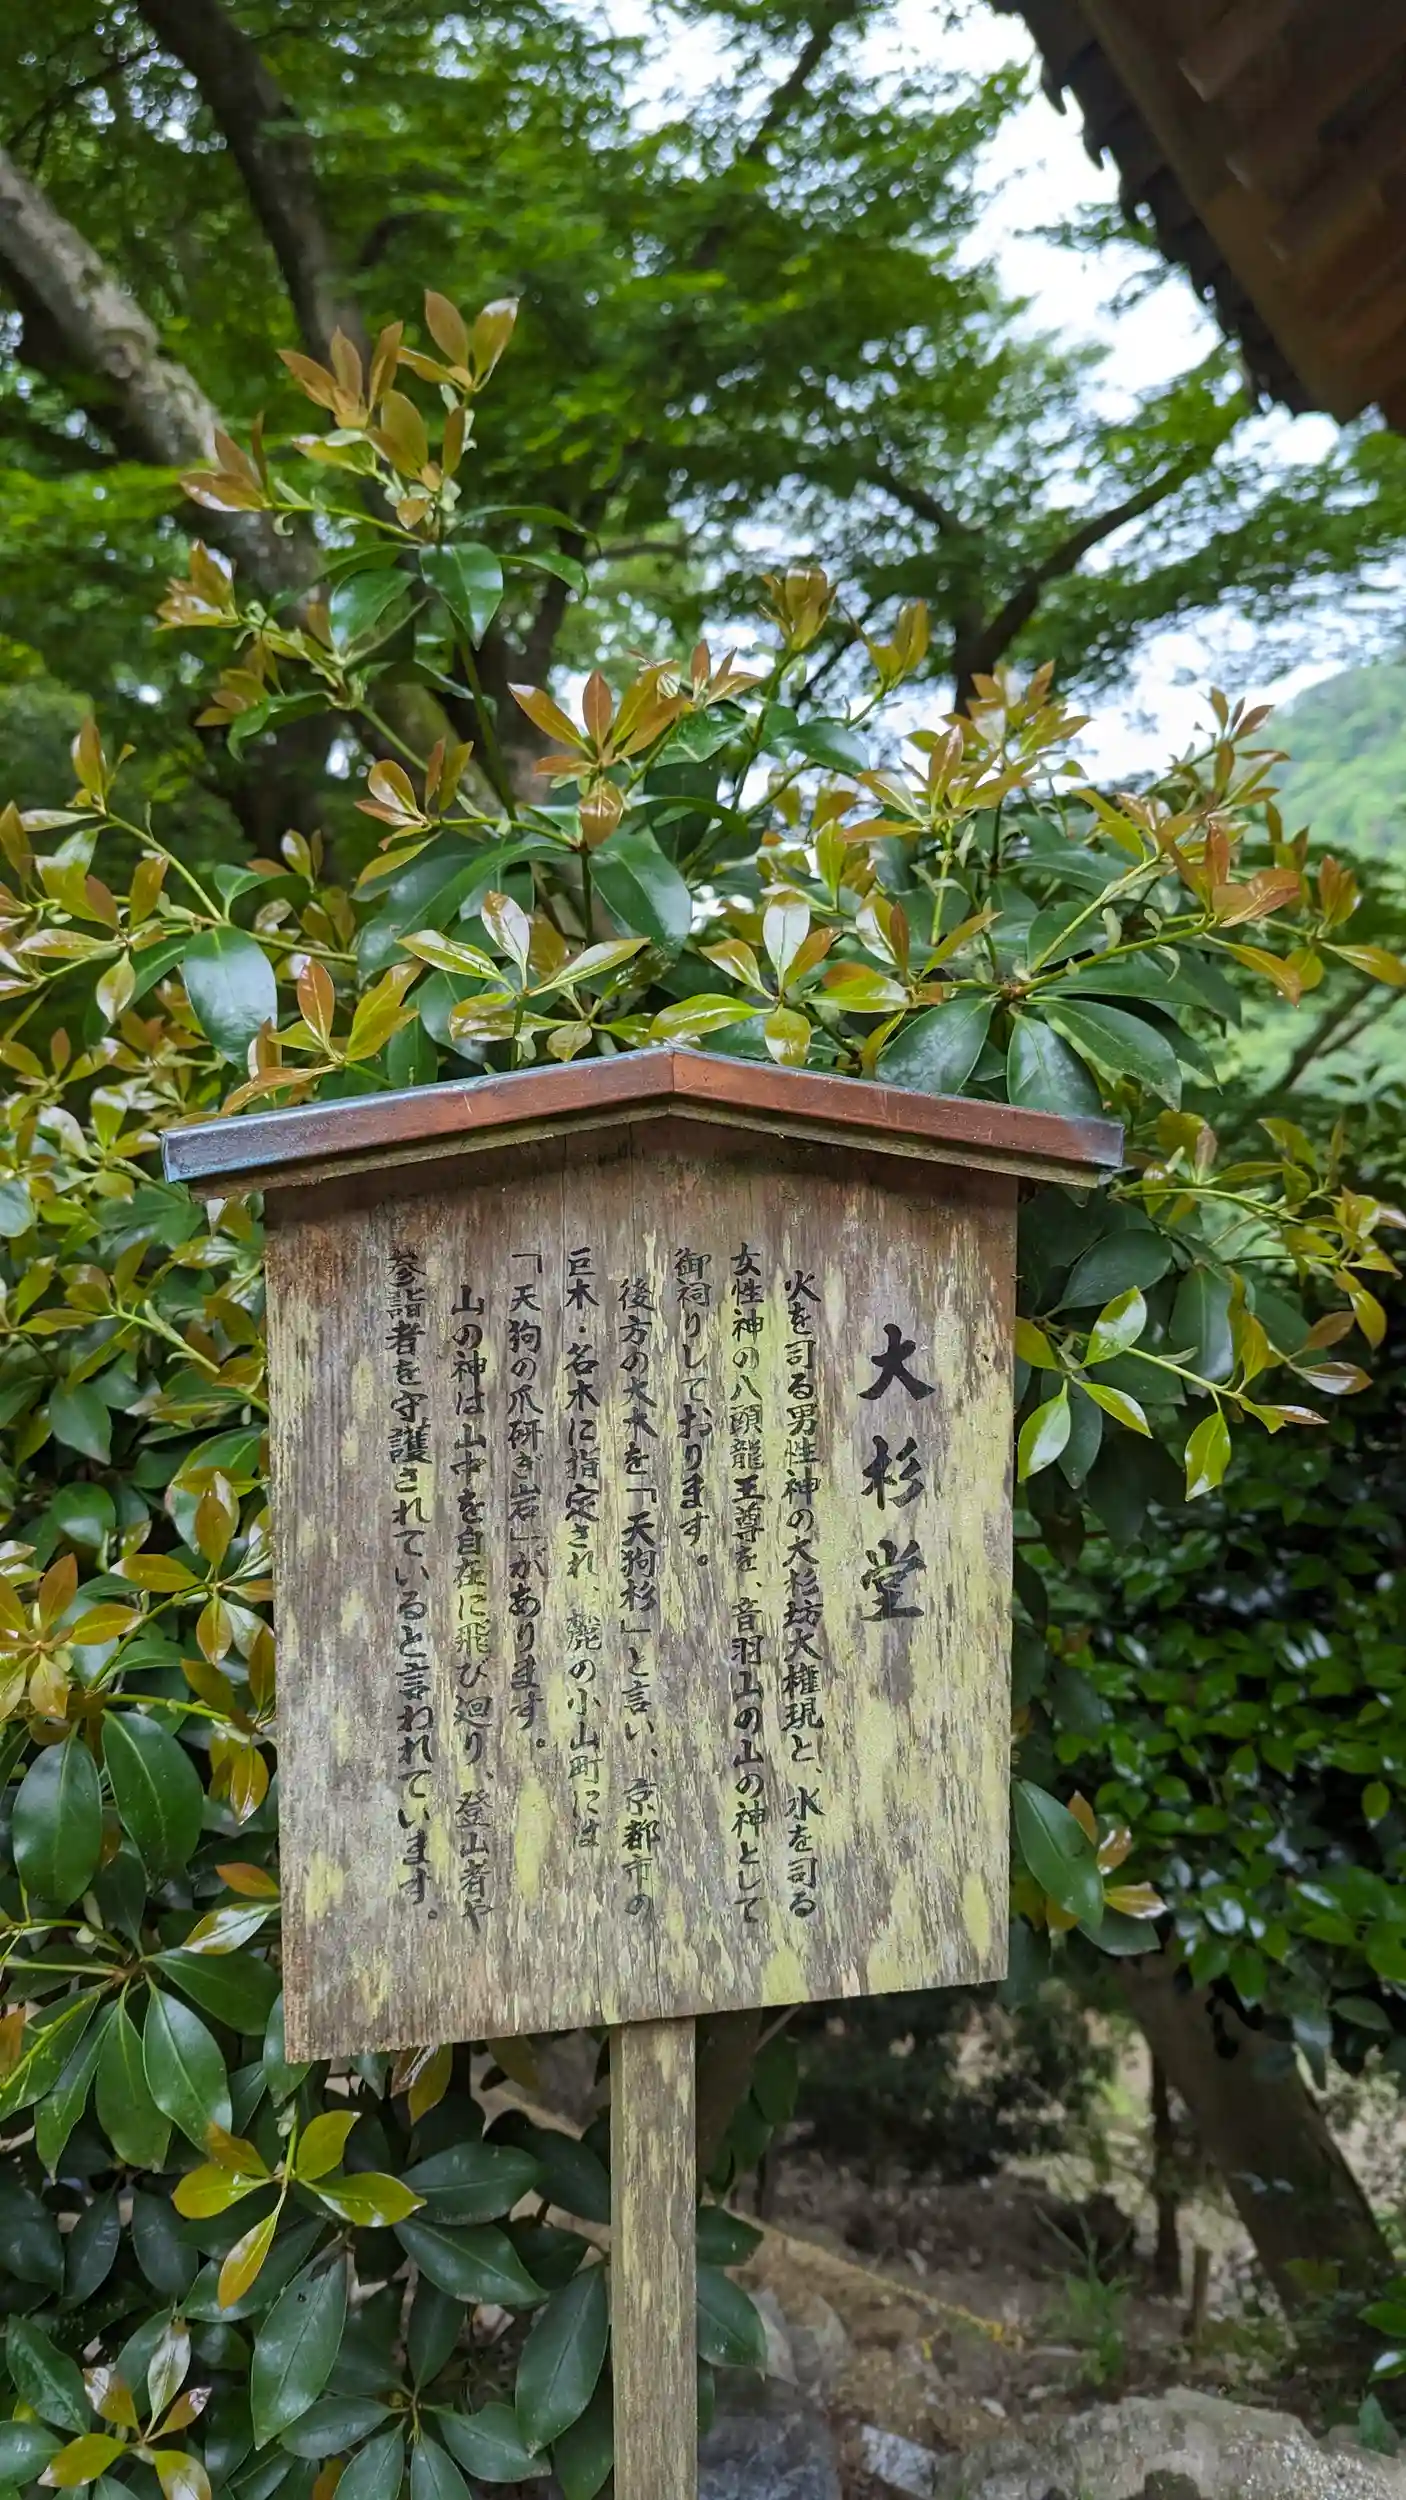 大杉堂
火を司る男性神の大杉坊大権現と、水を司る
女性神の八頭龍王尊を、音羽山の山の神として
御祠りしております。
後方の大木を「天狗杉」と言い、京都市の
巨木・名木に指定され、麓の小山町には
「天狗の爪研ぎ岩」があります。
山の神は山中を自在に飛び廻り、登山者や
参詣者を守護されていると言われています。